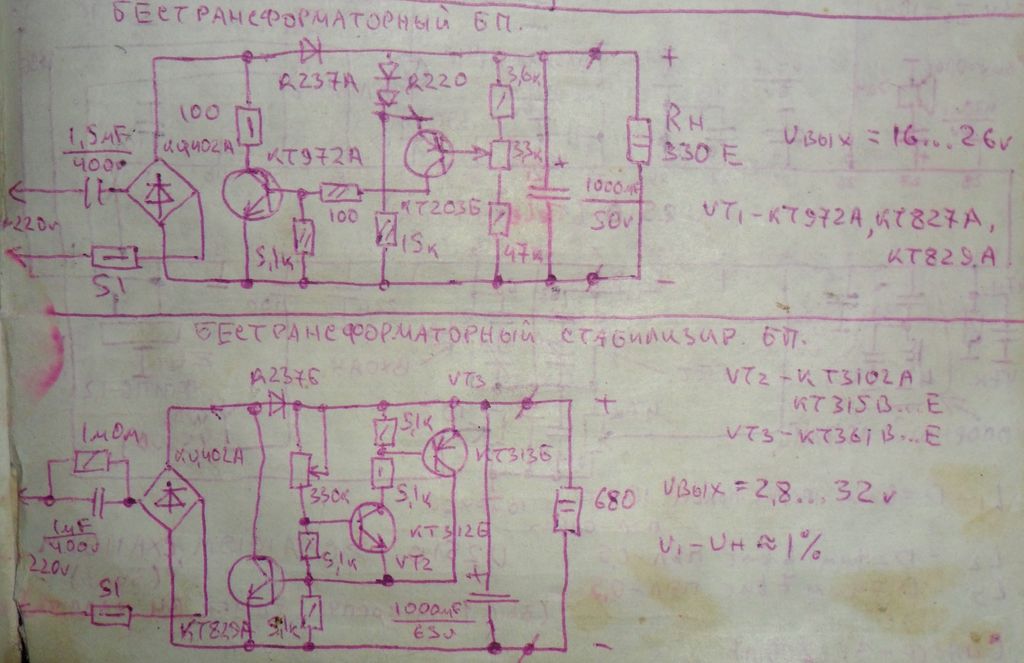 БЕСТРАНСФОРМАТОРНЫЙ БП.
Д237А
Д220
3,6к
+
100
1,5мF
400v
КЦ402А
КТ972А
33к
+
RН
330 Е
UВЫХ = 16...26v
~220v
100
КТ203Б
1000мF
50v
VT1 - КТ972А, КТ827А,
КТ829А
5,1
5,1к
15к
47к
-
БЕСТРАНСФОРМАТОРНЫЙ СТАБИЛИЗИР. БП.
Д237Б
VT3
+
VT2 - КТ3102А
КТ315В...Е
VT3 - КТ361В...Е
1мОм
КЦ402А
5,1к
КТ313Б
330к
5,1к
680
UВЫХ = 2,8...32v
1мF
400v
КТ312Б
5,1к
VT2
U1 - UН ≈ 1%
220v
51
+
КТ829А
5,1к
1000мF
63v
-